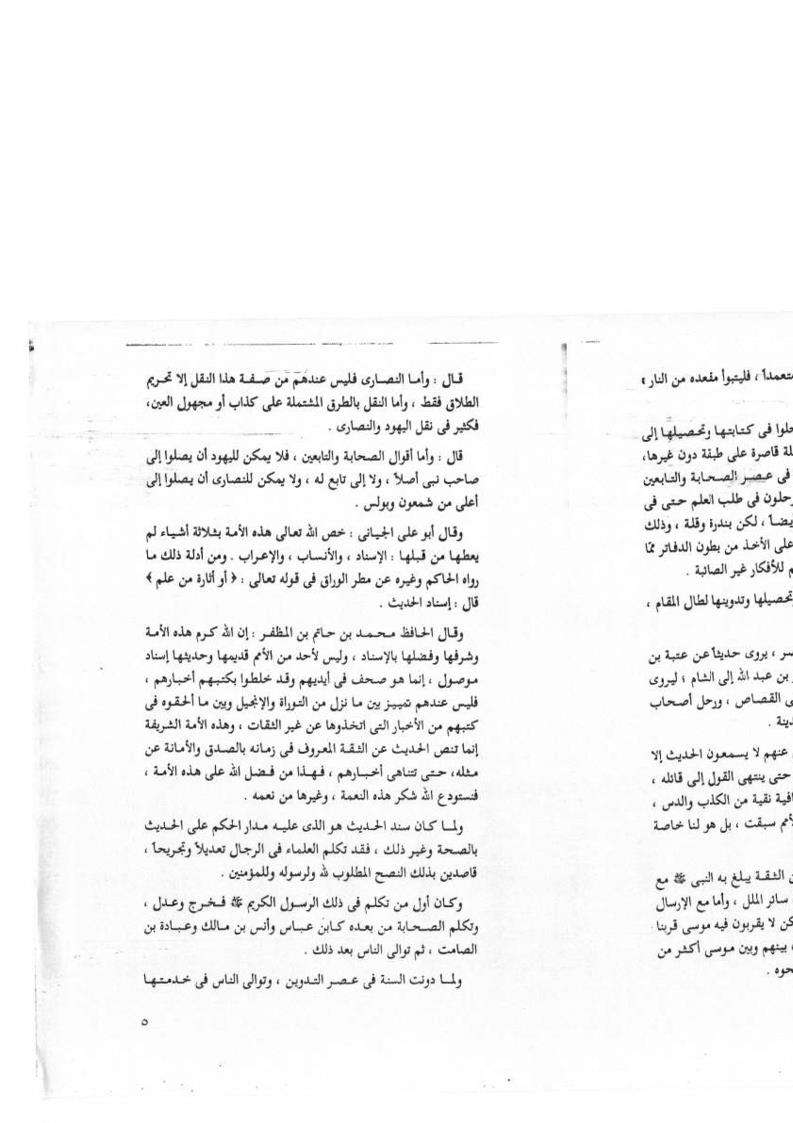 متعمداً ، فليتبوأ مقعده من النار »
فى كتابتها وتحصيلها إلى
قاصرة على طبقة دون غيرها،
فى عصر الصحابة والتابعين
يرحلون فى طلب العلم حتى فى
، لكن بندرة وقلة ، وذلك
على الأخذ من بطون الدفاتر ممّا
للأفكار غير الصائبة .
وتحصيلها وتدوينها لطال المقام ،
، يروى حديثاً عن عتبة بن
بن عبد الله إلى الشام ؛ ليروى
القصاص ، ورحل أصحاب
عنهم لا يسمعون الحديث إلا
حتى ينتهى القول إلى قائله ،
نقية من الكذب والدس ،
سبقت ، بل هو لنا خاصة
الثقة يبلغ به النبى ﷺ مع
سائر الملل ، وأما مع الإرسال
لا يقربون فيه موسى قربنا
بينهم وبين موسى أكثر من
قال : وأما النصارى فليس عندهم من صفة هذا النقل إلا تحريم
الطلاق فقط ، وأما النقل بالطرق المشتملة على كذاب أو مجهول العين،
فكثير فى نقل اليهود والنصارى .
قال : وأما أقوال الصحابة والتابعين ، فلا يمكن لليهود أن يصلوا إلى
صاحب نبى أصلاً ، ولا إلى تابع له ، ولا يمكن للنصارى أن يصلوا إلى
أعلى من شمعون وبولس .
وقال أبو على الجيانى : خص الله تعالى هذه الأمة بثلاثة أشياء لم
يعطها من قبلها : الإسناد ، والأنساب ، والإعراب . ومن أدلة ذلك ما
رواه الحاكم وغيره عن مطر الوراق فى قوله تعالى : ﴿ أو أثارة من علم ﴾
قال : إسناد الحديث .
وقال الحافظ محمد بن حاتم بن المظفر : إن الله كرم هذه الأمة
وشرفها وفضلها بالإسناد ، وليس لأحد من الأمم قديمها وحديثها إسناد
موصول ، إنما هو صحف فى أيديهم وقد خلطوا بكتبهم أخبارهم ،
فليس عندهم تمييز بين ما نزل من التوراة والإنجيل وبين ما ألحقوه فى
كتبهم من الأخبار التى اتخذوها عن غير الثقات ، وهذه الأمة الشريفة
إنما تنص الحديث عن الثقة المعروف فى زمانه بالصدق والأمانة عن
مثله، حتى تتناهى أخبارهم ، فهذا من فضل الله على هذه الأمة ،
فنستودع الله شكر هذه النعمة ، وغيرها من نعمه .
ولما كان سند الحديث هو الذى عليه مدار الحكم على الحديث
بالصحة وغير ذلك ، فقد تكلم العلماء فى الرجال تعديلاً وتجريحاً ،
قاصدين بذلك النصح المطلوب لله ولرسوله وللمؤمنين .
وكان أول من تكلم فى ذلك الرسول الكريم ﷺ فخرج وعدل ،
وتكلم الصحابة من بعده كابن عباس وأنس بن مالك وعبادة بن
الصامت ، ثم توالى الناس بعد ذلك .
ولما دونت السنة فى عصر التدوين ، وتوالى الناس فى خدمتها
٥